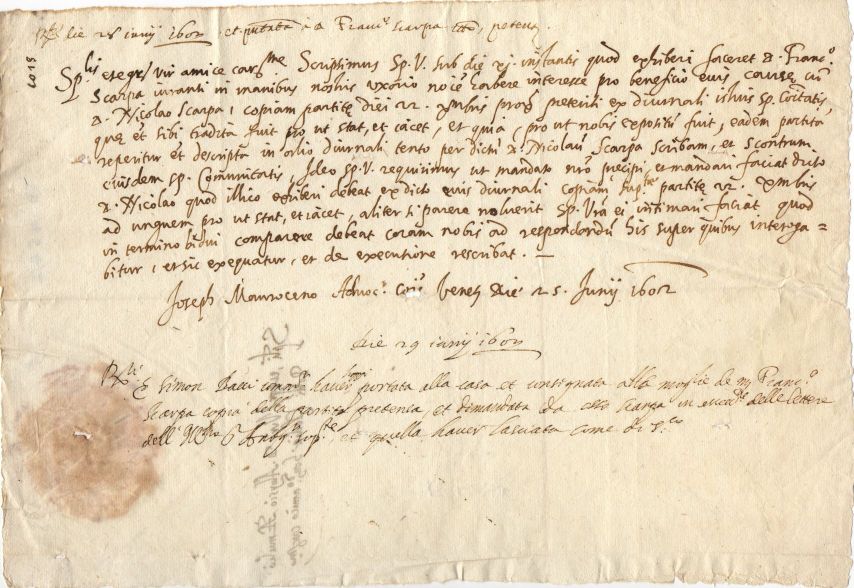 die 28 iunij 1602 et ser Franc.º Scarpa petens
Sp.lis et egr.e vir amice car.me Scripsimus Sp. V. sub die xj. instantis quod exhiberi faceret d. Franc.º
Scarpa iuranti in manibus nostris uxorio noïe habere interesse pro beneficio eius causę cū
d. Nicolao Scarpa, copiam partitę diei 22. Xmbris prox̄ preteriti ex diurnali istius Sp. Coītatis,
quę et sibi tradita fuit pro ut stat, et iacet, et quia, pro ut nobis expositū fuit, eadem partita
reperitur et descripta in diurnali tento per dictū d. Nicolaū Scarpa scribam, et scontrum
eiusdem Sp. Com̄unitatis, Ideo Sp. V. requirimus ut mandato nrō precipi, et mandari faciat dicto
d. Nicolao quod illico exhiberi debeat ex dicto eius diurnali copiam sup.te partitę 22. Xmbris
ad unguem pro ut stat, et iacet, aliter si parere noluerit Sp. Vrā ei intimari faciat quod
in termino bidui comparere debeat coram nobis ad respondendū his super quibus interoga=
bitur, et sic exequatur, et de executione rescribat. —
Joseph Mauroceno Advoc. Cōis Venet. Die 25. Junij 1602
die 29 iunij 1602
R.tli
Simon haver portata alla casa et consignata alla moglie de m. Franc.º
Scarpa copia della partita pretensa, et demandata da esso Scarpa in delle lettere
dell' sop.te, et quella haver lasciata come di s.
1018